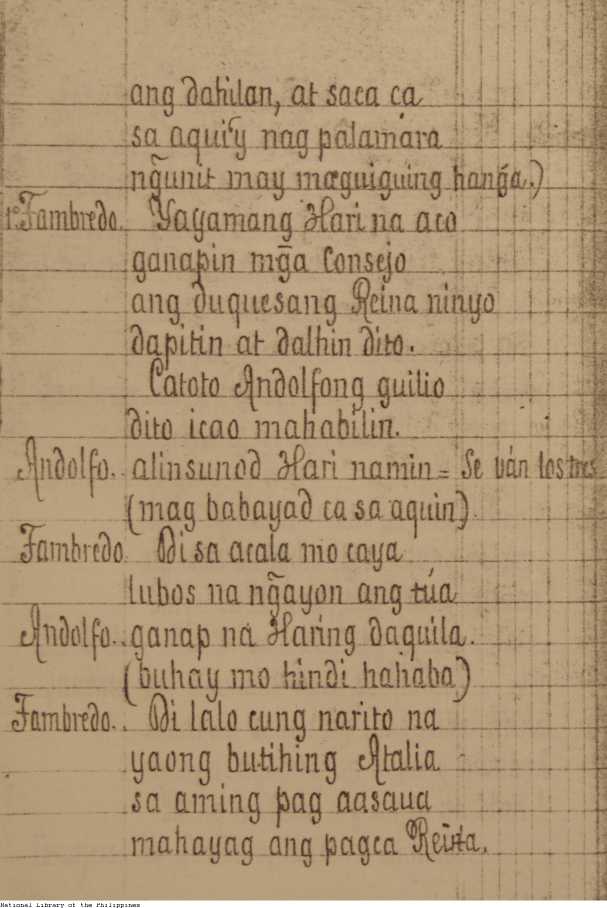 ang dahilan, at saca ca
sa aqui'y nag palamara
ng̃unit may maguiguing hang̃a.)
1º Fambredo. Yayamang Hari na aco
ganapin mg̃a Consejo
ang duquesang Reina ninyo
dapitin at dalhin dito.
Catoto Andolfong guilio
dito icao mahabilin.
Andolfo. alinsunod Hari namin = Se ván los tres
(mag babayad ca sa aquin).
Fambredo. Di sa acala mo caya
lubos na ng̃ayon ang túa
Andolfo. ganap na Haring daquila.
(buhay mo hindi hahaba)
Fambredo. Di lalo cung narito na
yaong butihing Atalia
sa aming pag aasaua
mahayag ang pagca Reina.
National Library of the Philippines